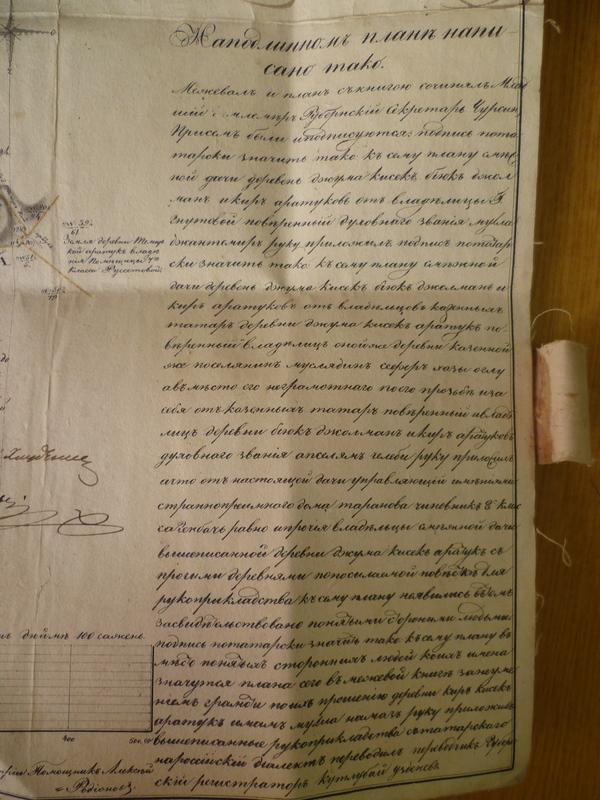 На подлинномъ планѣ напи
сано тако.
Межевалъ и планъ съ книгою сочинялъ Млад
шій землемѣръ Губернскій секретарь Чурсин
При семъ были и подписуются: подпись пота
тарски значитъ тако къ сему плану смѣж
ной дачи деревень джума кисек біюк джол
манъ и киръ аратуковъ отъ владелицы
повѣренный духовного званія мулла
джантемиръ руку приложилъ подпис по татар
ски значитъ тако къ сему плану смѣжной
дачи деревень джума кисек біюк джолманъ и
киръ аратуковъ отъ владѣльцовъ казенныхъ
татаръ деревни джума кисек аратукъ по
вѣренный владѣлиць оной же деревни казенной
же поселянинъ муслядинъ сефер газы оглу
а вмѣсто его неграмотнаго по его прозьбѣ и за
себя отъ казенныхъ татаръ повѣренный и влад
лицъ деревни біюк джолман и киръ аратуковъ
духовного званія апселямъ челеби руку приложилъ
а что отъ настоящой дачи управляющій имѣніями
страннопріемнаго дома таранова чиновникъ 8 клас
са равно и прочія владѣльцы смежной дачи
вышеписанной деревни джума кисек аратук съ
прочими деревнями по посылаемой повѣсткѣ для
рукоприкладства къ сему плану неявились въ томъ
засвидѣтельствовано понятыми сторонними людьми
подпись потатарски значитъ тако къ сему плану в
мѣсто понятыхъ стороннихъ людей коихъ имена
значутся плана сего въ межевой книге за неуме
ніемъ грамоти по ихъ прошенію деревни киръ кисек
аратукъ имамъ мулла руку приложилъ
вышеписанные рукоприкладства съ татарскаго
на россійскій диалектъ переводилъ переводчикъ Губерн
скій регистраторъ кутлубай
Земля деревни
кой аратукъ владе
нія Помещицы 7го
класса
дюймѣ 100 сажень.
400
500
Помощникъ Алексѣй
Родіонов